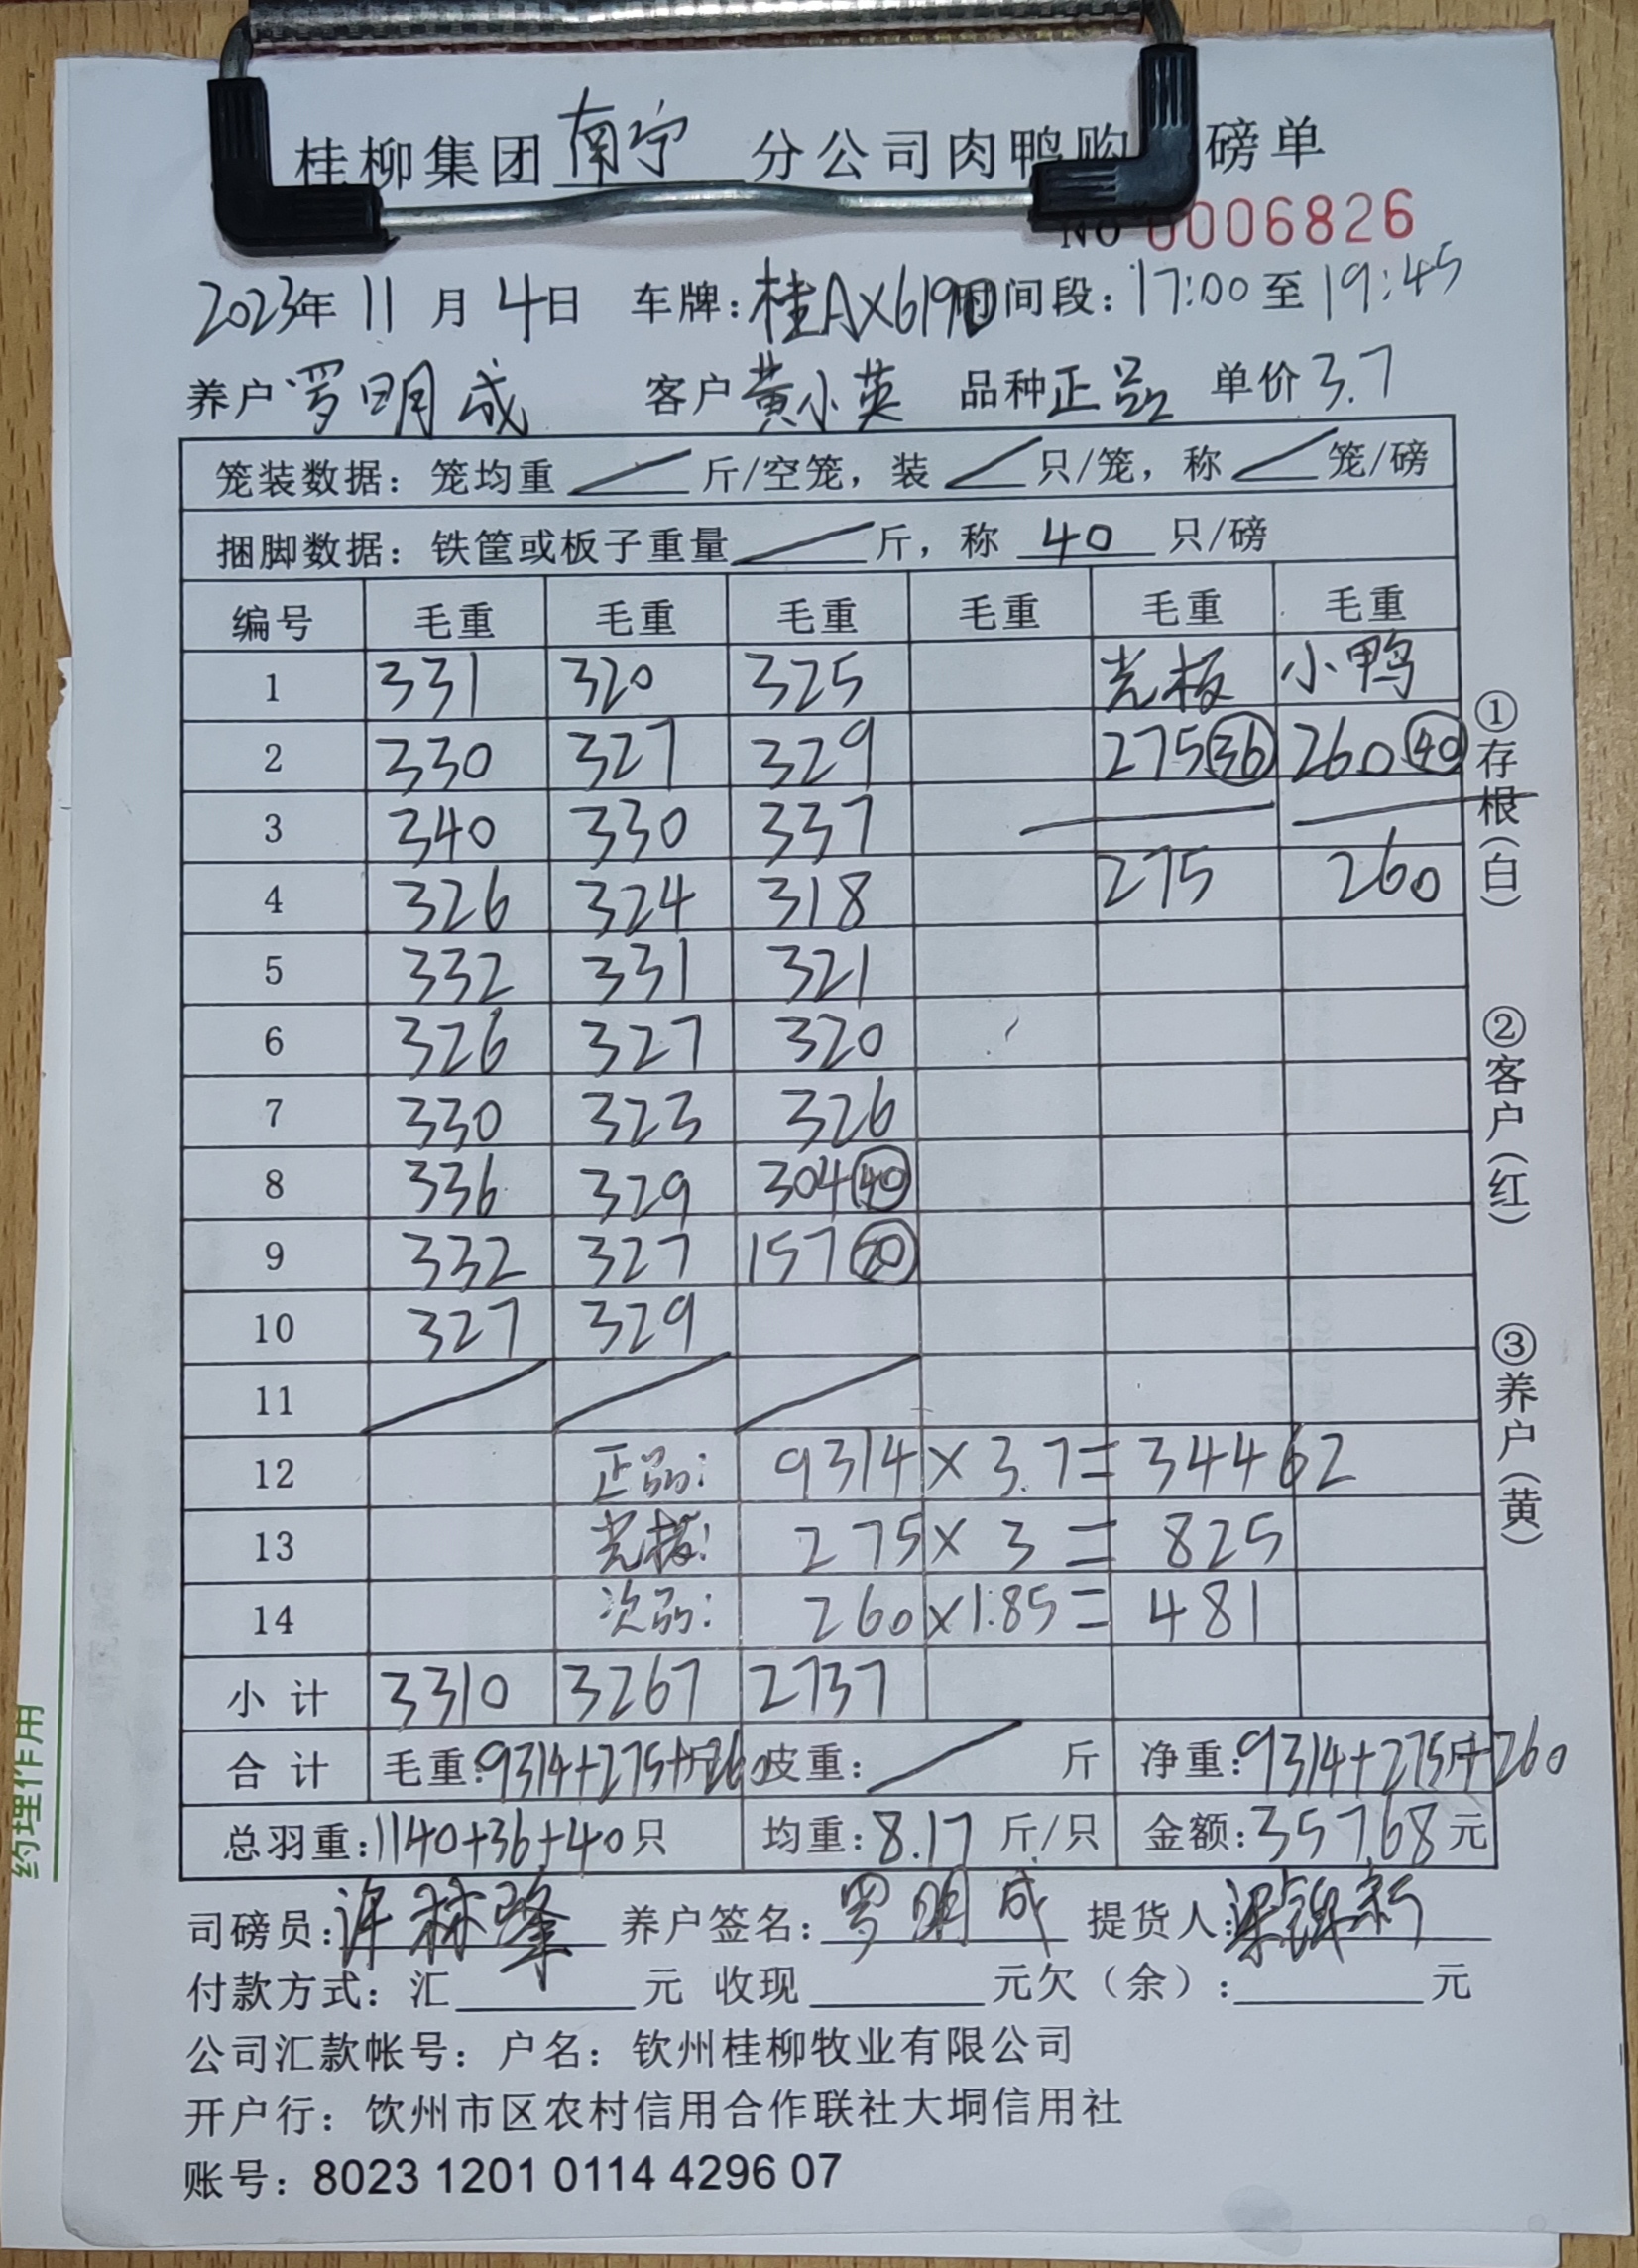 桂柳集团南宁分公司肉鸭购磅单
No 0006826
2023年11月4日 车牌:桂AX619 时间段:17:00至19:45
养户罗明成 客户黄小英 品种正品 单价3.7
笼装数据:笼均重 / 斤/空笼,装 / 只/笼,称 / 笼/磅
捆脚数据:铁筐或板子重量 / 斤,称 40 只/磅
编号 毛重 毛重 毛重 毛重 毛重 毛重
1 331 320 325 光板 小鸭
2 330 327 329 275㊱ 260㊵
3 340 330 337
4 326 324 318 275 260
5 332 331 321
6 326 327 320
7 330 323 326
8 336 329 304㊵
9 332 327 157
10 327 329
11 / / /
12 正品: 9314×3.7=34462
13 光板: 275×3=825
14 次品: 260×1.85=481
小计 3310 3267 2737
合计 毛重:9314+275+260斤 皮重: / 斤 净重:9314+275+260斤
总羽重:1140+36+40只 均重:8.17斤/只 金额:35768元
司磅员:许林隆 养户签名:罗明成 提货人:
付款方式:汇 元 收现 元欠(余): 元
公司汇款帐号:户名:钦州桂柳牧业有限公司
开户行:钦州市区农村信用合作联社大垌信用社
账号:8023 1201 0114 4296 07
①存根(白) ②客户(红) ③养户(黄)
药理作用